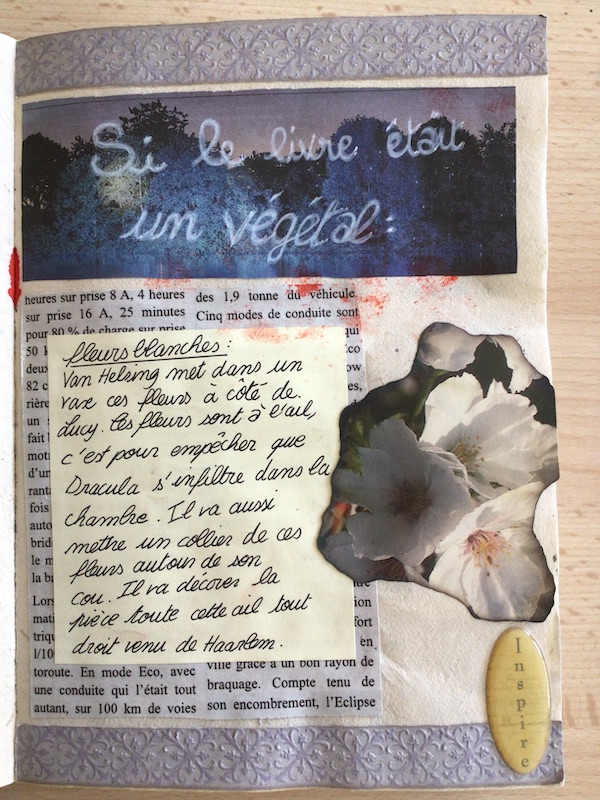 Si le livre était
un végétal :
heures sur prise 8 A, 4 heures
sur prise 16 A, 25 minutes
pour 80 % de charge sur prise
50 k
deux
82 c
rière
un s
fait b
mots
d'un
ranta
fois
auto
brid
le m
la ba
Lors
mati
triqu
l/10
toroute. En mode Eco, avec
une conduite qui l'était tout
autant, sur 100 km de voies
des 1,9 tonne du véhicule
Cinq modes de conduite sont
qui
Eco
ow
de
fleurs blanches :
Van Helsing met dans un
vase ces fleurs à côté de
Lucy. Ces fleurs sont à l'ail,
c'est pour empêcher que
Dracula s'infiltre dans la
chambre. Il va aussi
mettre un collier de ces
fleurs autour de son
cou. Il va décorer la
pièce toute cette ail tout
droit venu de Haarlem.
ion
fort
en
ville grâce à un bon rayon de
braquage. Compte tenu de
son encombrement, l'Eclipse
Inspire